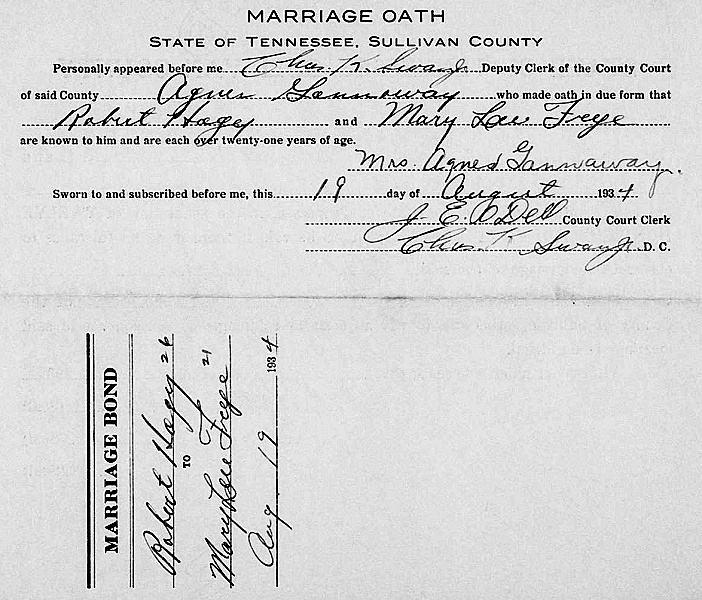 MARRIAGE OATH
STATE OF TENNESSEE, SULLIVAN COUNTY
Personally appeared before me Chas. K. Swan Jr. Deputy Clerk of the County Court
of said County Agnes Gannoway who made oath in due form that
Robert Hagey and Mary Lee Freye
are known to him and are each over twenty-one years of age.
Mrs. Agnes Gannaway.
Sworn to and subscribed before me, this 19 day of August 1934
J. E. O'Dell County Court Clerk
Chas. K. Swan Jr. D. C.
MARRIAGE BOND
Robert Hagey 26
TO
Mary Lee Freye 21
Aug 19 1934